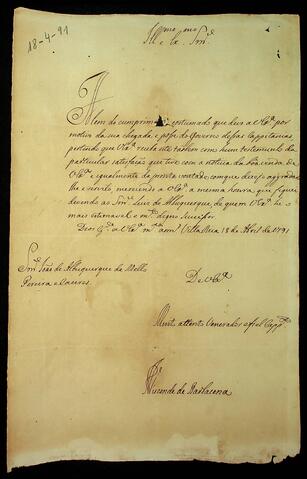 18-4-91
Ill.mo e Ex.mo Snr.
Alem do cumprimento costumado que devo a V Ex.a por
motivo da sua chegada, e posse do Governo dessas Cappitanias
pertendo que V Ex.a receba este tambem com hum testemunho da
particular satisfação que tive com a noticia da boa vinda de
V Ex.a e igualmente da prompta vontade com que dezejo agradar-
lhe e servilo merecendo a V Ex.a a mesma honra, que fiquei
devendo ao Snr. Luis de Albuquerque, de quem V Ex.a he
mais estimavel e m.to digno sucessor
Deos g.e a V Ex.a m.s ann.s Villa Rica 18 de Abril de 1791
Snr. João de Albuquerque de Mello
Pereira e Caceres.
De V Ex.a
Muito attento Venerador e fiel
Visconde de Barbacena